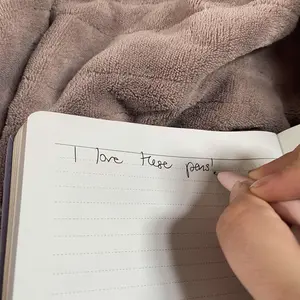 I love these pens!